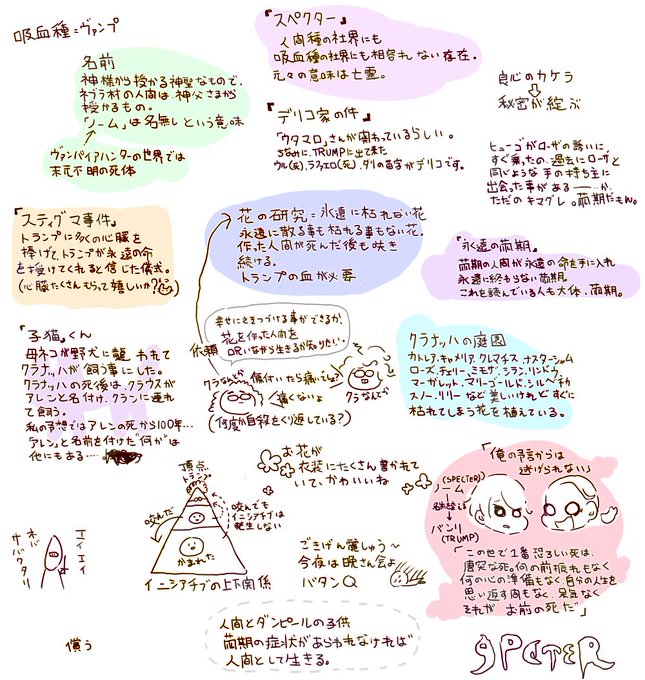 吸血種=ヴァンプ
名前
神様から授かる神聖なもので、
ネブラ村の人間は、神父さまから
授かるもの。
「ノーム」は名無しという意味
ヴァンパイアハンターの世界では
末元不明の死体
『スペクター』
人間種の社界にも
吸血種の社界にも相容れない存在。
元々の意味は亡霊。
『デリコ家の件』
「ウタマロ」さんが関わっているらしい。
ちなみに、TRUMPに出て来た
ウル(死)、ラファエロ(死)、ダリの苗字がデリコです。
良心のカケラ
⇩
秘密が綻ぶ
ヒューゴがローザの誘いに、
すぐ乗ったの、過去にローザと
同じような手の持ち主に
出会った事がある――が、
ただのキマグレ。繭期だもん。
『スティグマ事件』
トランプに多くの心臓を
捧げて、トランプが永遠の命
を授けてくれると信じた儀式。
(心臓たくさんもらって嬉しいか?)
花の研究=永遠に枯れない花
永遠に散る事も枯れる事もない花。
作った人間が死んだ後も咲き
続ける。
トランプの血が必要
『永遠の繭期』
繭期の人間が永遠の命を手に入れ
永遠に終わらない繭期。
これを読んでいる人も大体、繭期。
『子猫』くん
母ネコが野犬に襲われて
クラナッハが飼う事にした。
クラナッハの死後は、クラウスが
アレンと名付け、クランに連れ
て飼う。
私の予想ではアレンの死から100年…
アレンと名前を付けた"何か"は
他にもある…
依頼
幸せにさきつづける事ができるか、
花を作った人間を
呪いながら生きるか知りたい。
クラなんとか
傷付いたら痛いでしょ?
痛くないよ
クラなんとか
(何度か自殺をくり返している?)
クラナッハの庭園
カトレア、キャメリア、クレマチス、ナスターシャム
ローズ、チェリー、ミモザ、シラン、リンドウ、
マーガレット、マリーゴールド、シルベチカ
スノー、リリーなど美しいけれどすぐに
枯れてしまう花を植えている。
お花が
衣装にたくさん書かれて
いて、かわいいね
頂点
トランプ
咬んだ
咬んでも
イニシアチブは
発生しない
かまれた
イニシアチブの上下関係
ごきげん麗しゅう~
今夜は晩さん会よ
バタンQ
「俺の予言からは
逃げられない」
(SPECTER)
ノーム
↓
バンリ
(TRUMP)
「この世で1番恐ろしい死は、
唐突な死。何の前振れもなく
何の心の準備もなく、自分の人生を
思い返す間もなく、呆気なく
それがお前の死だ」
エイエイ
ネバ
サバクタニ
償う
人間とダンピールの子供
繭期の症状があらわれなければ
人間として生きる。
SPECTER